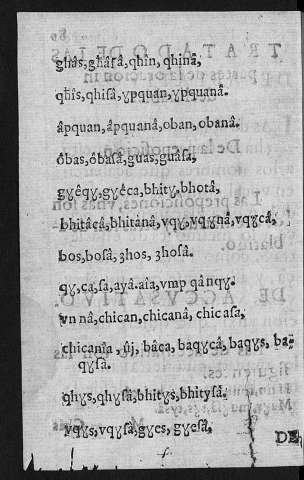 ghâs, ghâſâ, qhîn, qhinâ,
qhîs, qhiſâ, ypquan, ypquanâ.
âpquan, âpquanâ, oban, obanâ.
óbas, óbaſâ, guas, guâſa,
gyêqy, gyêca, bhity, bhotâ,
bhitâcâ, bhitânâ, vqy, vqynâ, vqycâ,
bos, boſâ, ʒhos, ʒhoſâ.
qy, ca, ſa, ayâ. aîa, vmp qânqy.
vn nâ, chican, chicanâ, chic aſa,
chicanîa, ûj, bâca, baqycâ, baqys, ba-
qyſâ.
qhys, qhyſâ, bhitys, bhityſâ.
vqys, vqyſâ, gyes, gyeſâ,
DE